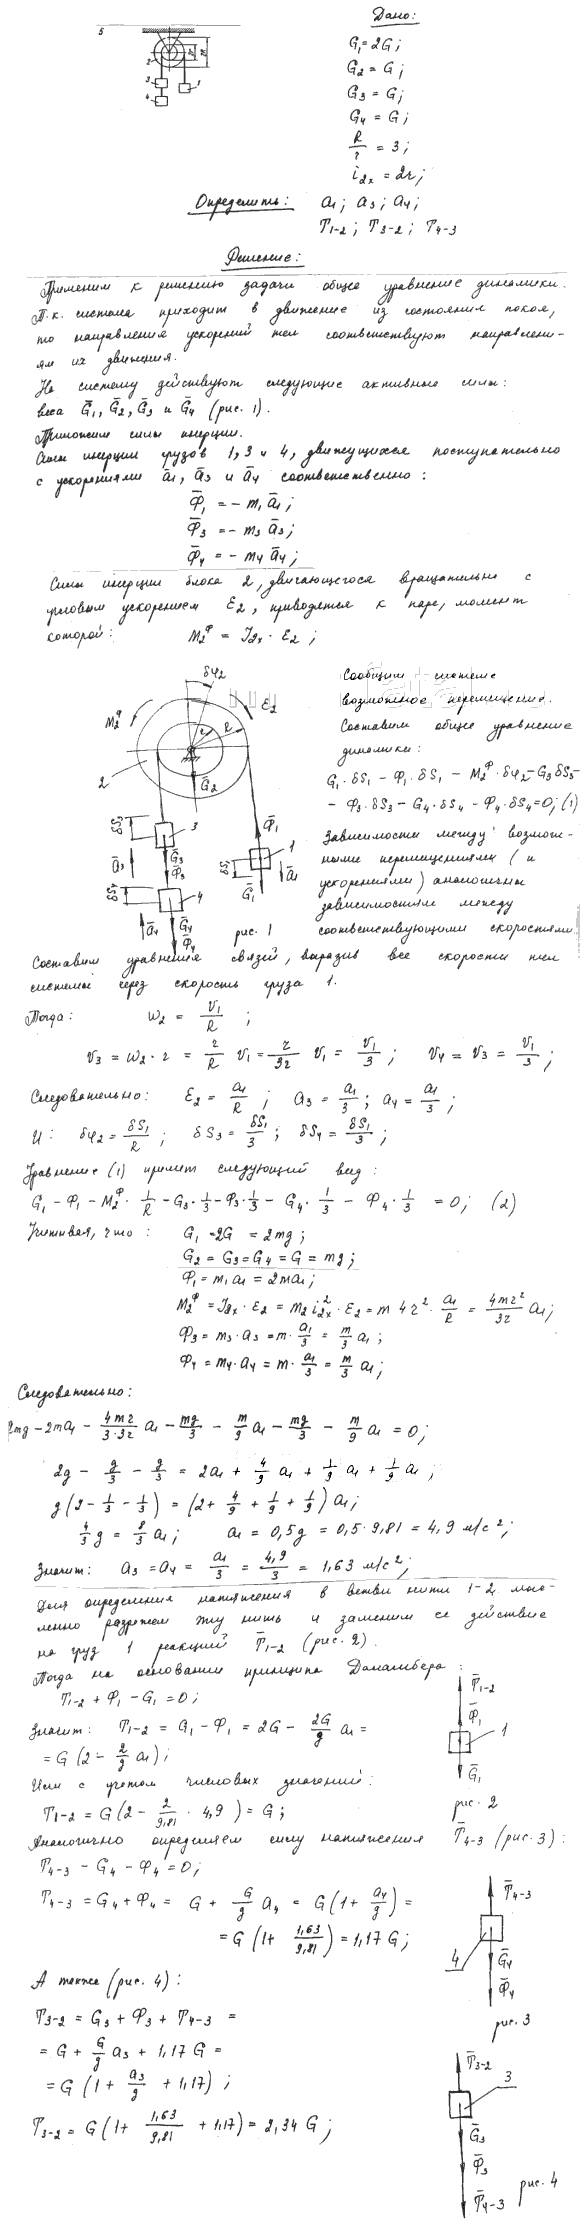 5
Дано:
G₁ = 2G;
G₂ = G;
G₃ = G;
G₄ = G;
R/r = 3;
i₂ₓ = 2r;
Определить: a₁; a₃; a₄;
T₁₋₂; T₃₋₂; T₄₋₃
Решение:
Применим к решению задачи общее уравнение динамики.
Т.к. система приходит в движение из состояния покоя,
то направления ускорений тел соответствуют направлени-
ям их движения.
На систему действуют следующие активные силы:
веса G̅₁, G̅₂, G̅₃ и G̅₄ (рис. 1).
Приложим силы инерции.
Силы инерции грузов 1, 3 и 4, движущихся поступательно
с ускорениями a̅₁, a̅₃ и a̅₄ соответственно:
Φ̅₁ = − m₁ a̅₁;
Φ̅₃ = − m₃ a̅₃;
Φ̅₄ = − m₄ a̅₄;
Силы инерции блока 2, двигающегося вращательно с
угловым ускорением ε₂, приводятся к паре, момент
которой: M₂ᶲ = J₂ₓ · ε₂;
δφ₂
M₂ᶲ
ε₂
r
R
2
G̅₂
δS₃
3
a̅₃
G̅₃
Φ̅₃
δS₄
4
a̅₄
G̅₄
Φ̅₄
Φ̅₁
δS₁
1
a̅₁
G̅₁
рис. 1
Сообщим системе
возможное перемещение.
Составим общее уравнение
динамики:
G₁·δS₁ − Φ₁·δS₁ − M₂ᶲ·δφ₂ − G₃·δS₃ −
− Φ₃·δS₃ − G₄·δS₄ − Φ₄·δS₄ = 0; (1)
Зависимости между возмож-
ными перемещениями (и
ускорениями) аналогичны
зависимостям между
соответствующими скоростями.
Составим уравнения связей, выразив все скорости тел
системы через скорость груза 1.
Тогда: ω₂ = V₁/R;
V₃ = ω₂·r = r/R V₁ = r/3r V₁ = V₁/3; V₄ = V₃ = V₁/3;
Следовательно: ε₂ = a₁/R; a₃ = a₁/3; a₄ = a₁/3;
И: δφ₂ = δS₁/R; δS₃ = δS₁/3; δS₄ = δS₁/3;
Уравнение (1) примет следующий вид:
G₁ − Φ₁ − M₂ᶲ · 1/R − G₃·1/3 − Φ₃·1/3 − G₄·1/3 − Φ₄·1/3 = 0; (2)
Учитывая, что: G₁ = 2G = 2mg;
G₂ = G₃ = G₄ = G = mg;
Φ₁ = m₁a₁ = 2ma₁;
M₂ᶲ = J₂ₓ·ε₂ = m₂ i₂ₓ²·ε₂ = m 4r² · a₁/R = 4mr²/3r a₁;
Φ₃ = m₃·a₃ = m·a₁/3 = m/3 a₁;
Φ₄ = m₄·a₄ = m·a₁/3 = m/3 a₁;
Следовательно:
2mg − 2ma₁ − 4mr/3·3r a₁ − mg/3 − m/9 a₁ − mg/3 − m/9 a₁ = 0;
2g − g/3 − g/3 = 2a₁ + 4/9 a₁ + 1/9 a₁ + 1/9 a₁;
g(2 − 1/3 − 1/3) = (2 + 4/9 + 1/9 + 1/9) a₁;
4/3 g = 8/3 a₁; a₁ = 0,5g = 0,5·9,81 = 4,9 м/с²;
Значит: a₃ = a₄ = a₁/3 = 4,9/3 = 1,63 м/с²;
Для определения натяжения в ветви нити 1-2, мыс-
ленно разрежем эту нить и заменим ее действие
на груз 1 реакцией T̅₁₋₂ (рис. 2).
Тогда на основании принципа Даламбера:
T₁₋₂ + Φ₁ − G₁ = 0;
Значит: T₁₋₂ = G₁ − Φ₁ = 2G − 2G/g a₁ =
= G(2 − 2/g a₁);
Или с учетом числовых значений:
T₁₋₂ = G(2 − 2/9,81 · 4,9) = G;
T̅₁₋₂
Φ̅₁
1
G̅₁
рис. 2
Аналогично определяем силу натяжения T̅₄₋₃ (рис. 3):
T₄₋₃ − G₄ − Φ₄ = 0;
T₄₋₃ = G₄ + Φ₄ = G + G/g a₄ = G(1 + a₄/g) =
= G(1 + 1,63/9,81) = 1,17 G;
T̅₄₋₃
4
G̅₄
Φ̅₄
рис. 3
А также (рис. 4):
T₃₋₂ = G₃ + Φ₃ + T₄₋₃ =
= G + G/g a₃ + 1,17 G =
= G(1 + a₃/g + 1,17);
T₃₋₂ = G(1 + 1,63/9,81 + 1,17) = 2,34 G;
T̅₃₋₂
3
G̅₃
Φ̅₃
T̅₄₋₃
рис. 4